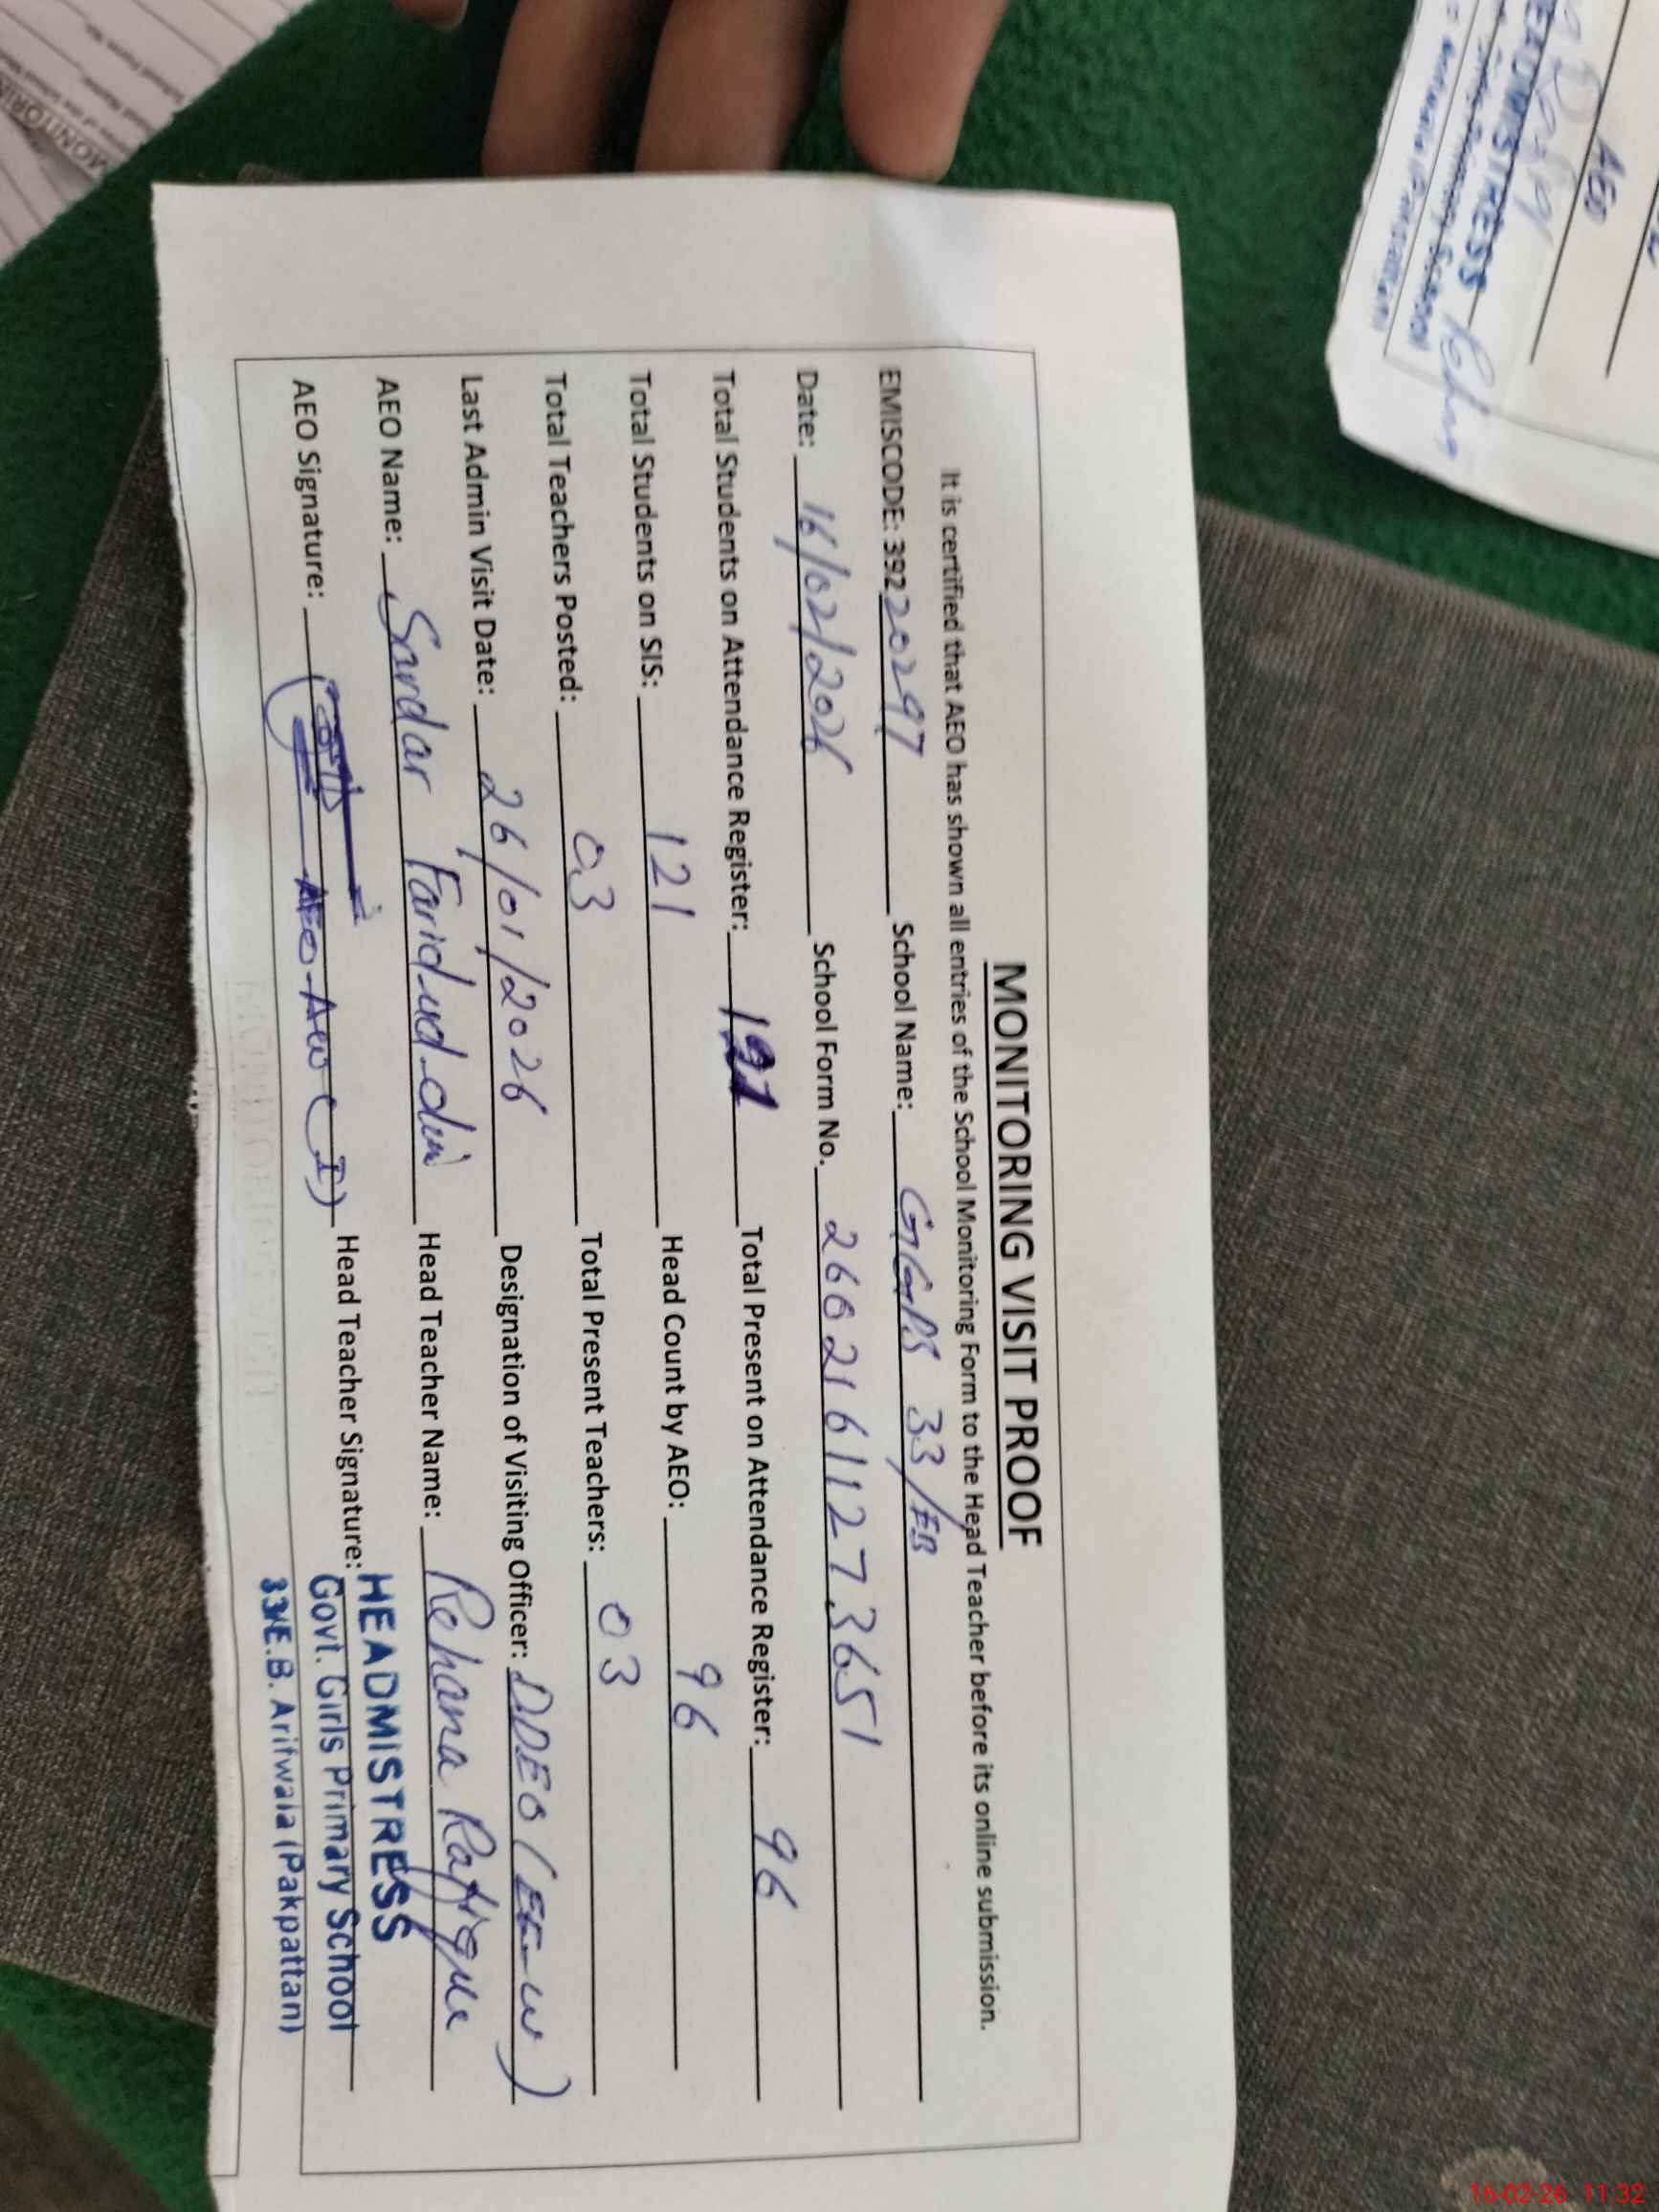 MONITORING VISIT PROOF
It is certified that AEO has shown all entries of the School Monitoring Form to the Head Teacher before its online submission.
EMISCODE: 39220297 School Name: GGPS 33/EB
Date: 16/02/2026 School Form No. 26021611273651
Total Students on Attendance Register: Total Present on Attendance Register: 96
Total Students on SIS: 121 Head Count by AEO: 96
Total Teachers Posted: 03 Total Present Teachers: 03
Last Admin Visit Date: 26/01/2026 Designation of Visiting Officer: DDEO (EE-W)
AEO Name: Sardar Farid.ud.din Head Teacher Name: Rehana Rafique
AEO Signature: Head Teacher Signature:
HEADMISTRESS
Govt. Girls Primary School
33/E.B. Arifwala (Pakpattan)
AEO
16-02-26 11:32